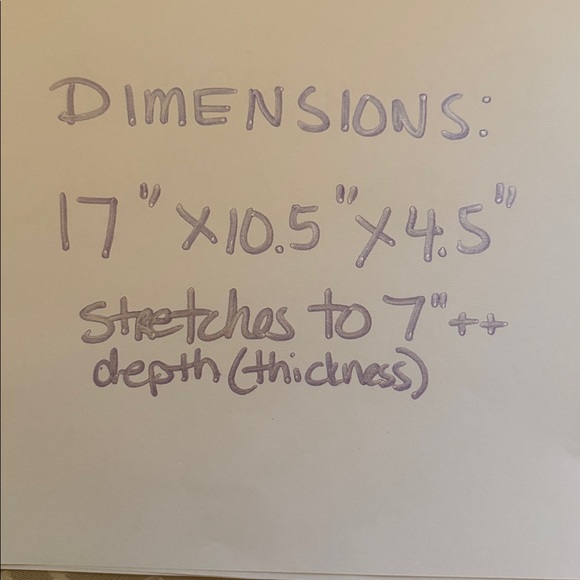 DIMENSIONS:
17" X10.5" X4.5"
stretches to 7"++
depth (thickness)